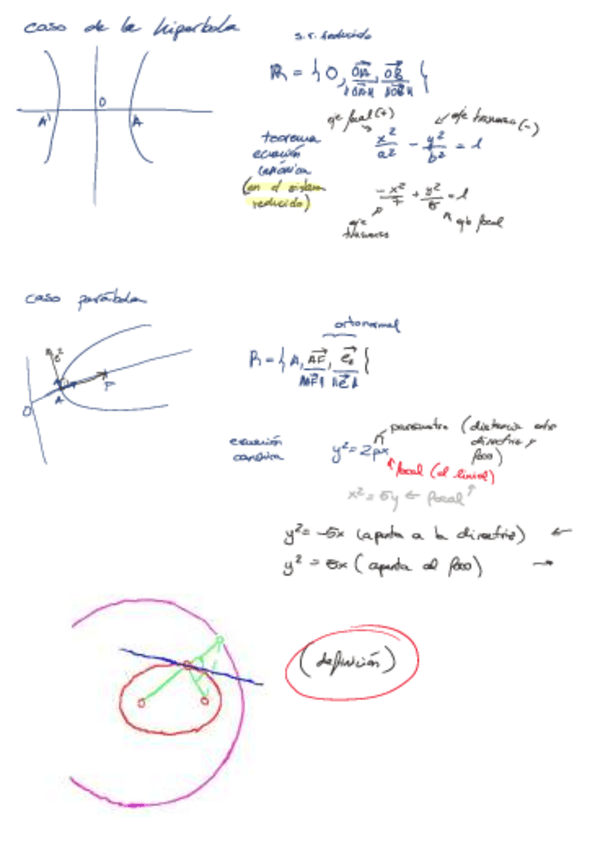 caso de la hipérbola
s.r. reducido
R = { O, OA/||OA||, OB/||OB|| }
A' O A
eje focal (+)
eje trasverso (-)
teorema
ecuación
canónica
(en el sistema
reducido)
x²/a² - y²/b² = 1
-x²/7 + y²/5 = 1
eje
trasverso
eje focal
caso parábola
ortonormal
R = { A, AF/||AF||, e₂/||e₂|| }
O A F
ecuación
canónica
y² = 2px
parámetro (distancia entre
directriz y
foco)
focal (el lineal)
x² = 5y ← focal
y² = -5x (apunta a la directriz) ←
y² = 5x (apunta al foco) →
(definición)